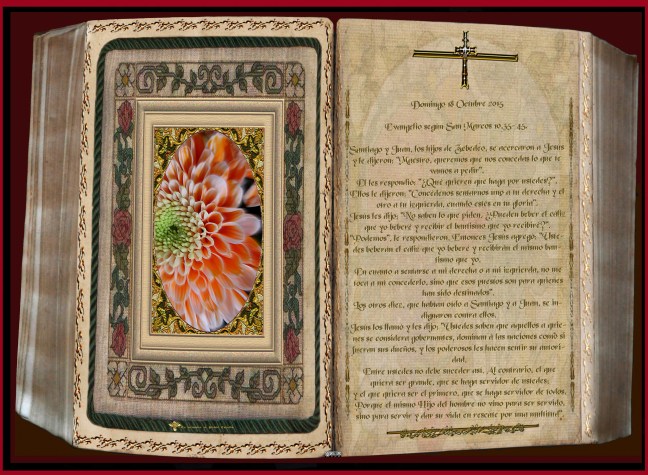 Domingo 18 Octubre 2015
Evangelio según San Marcos 10,35-45.
Santiago y Juan, los hijos de Zebedeo, se acercaron a Jesús
y le dijeron: "Maestro, queremos que nos concedas lo que te
vamos a pedir".
El les respondió: "¿Qué quieren que haga por ustedes?".
Ellos le dijeron: "Concédenos sentarnos uno a tu derecha y el
otro a tu izquierda, cuando estés en tu gloria".
Jesús les dijo: "No saben lo que piden. ¿Pueden beber el cáliz
que yo beberé y recibir el bautismo que yo recibiré?".
"Podemos", le respondieron. Entonces Jesús agregó: "Uste-
des beberán el cáliz que yo beberé y recibirán el mismo bau-
tismo que yo.
En cuanto a sentarse a mi derecha o a mi izquierda, no me
toca a mí concederlo, sino que esos puestos son para quienes
han sido destinados".
Los otros diez, que habían oído a Santiago y a Juan, se in-
dignaron contra ellos.
Jesús los llamó y les dijo: "Ustedes saben que aquellos a quie-
nes se considera gobernantes, dominan a las naciones como si
fueran sus dueños, y los poderosos les hacen sentir su autori-
dad.
Entre ustedes no debe suceder así. Al contrario, el que
quiera ser grande, que se haga servidor de ustedes;
y el que quiera ser el primero, que se haga servidor de todos.
Porque el mismo Hijo del hombre no vino para ser servido,
sino para servir y dar su vida en rescate por una multitud".